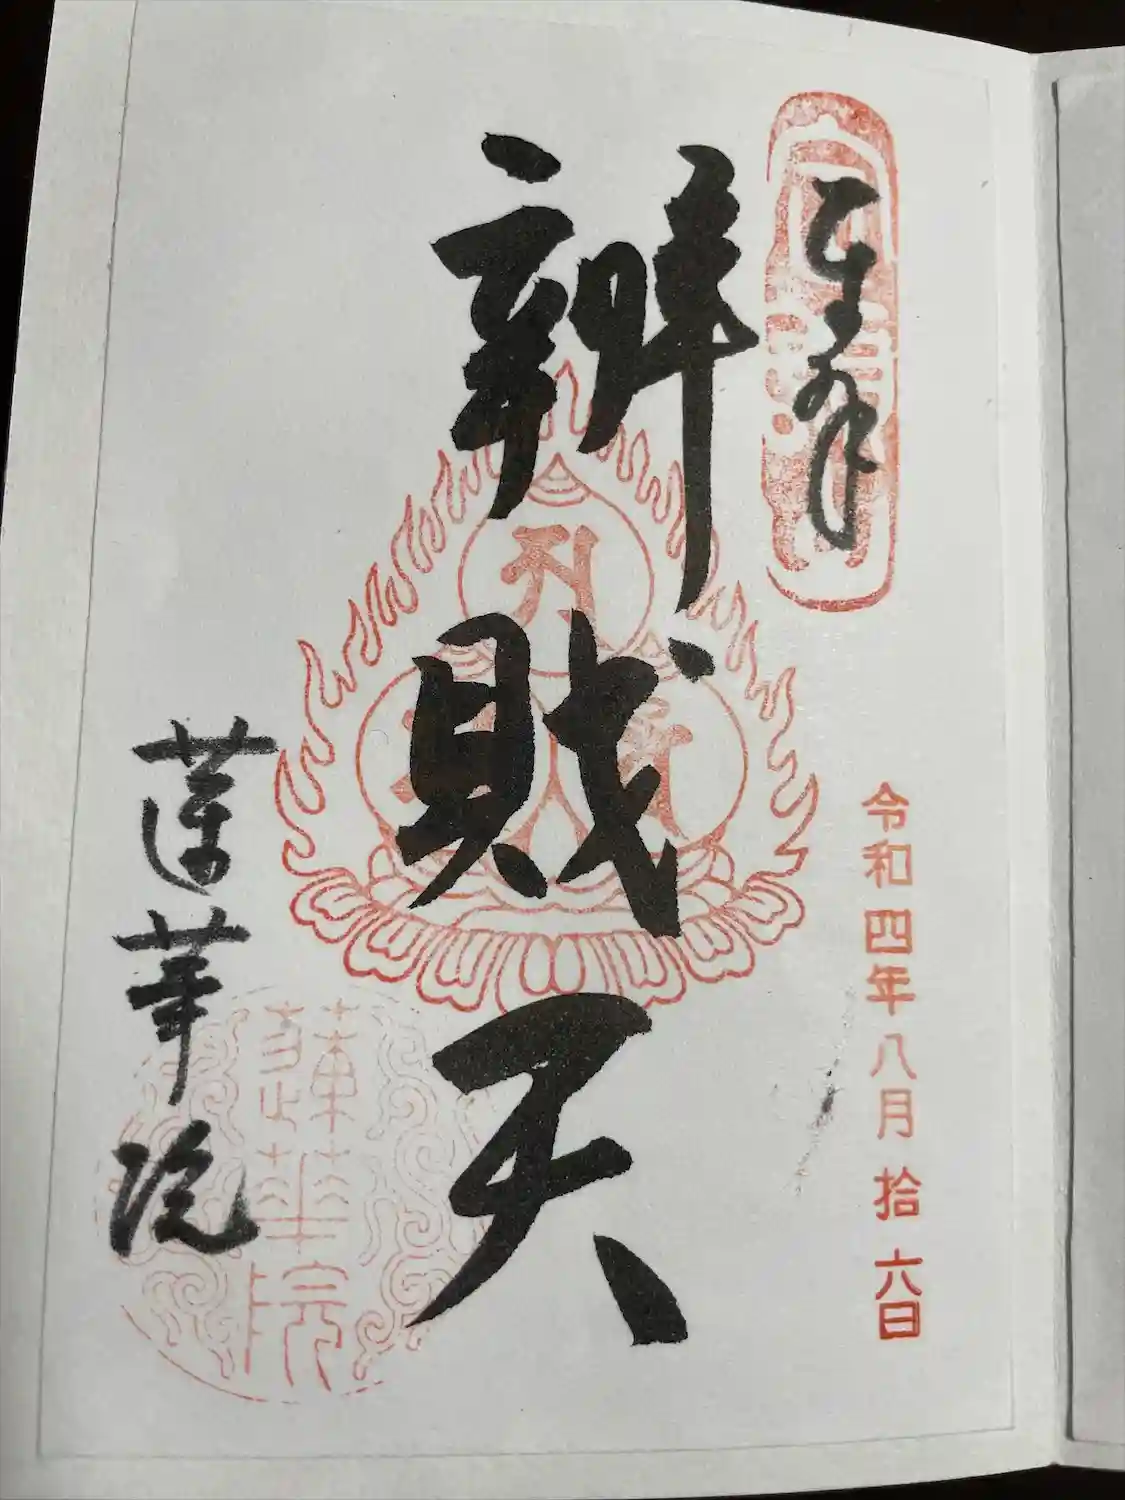 奉拝
令和四年八月拾六日
辨財天
蓮華院
蓮華院